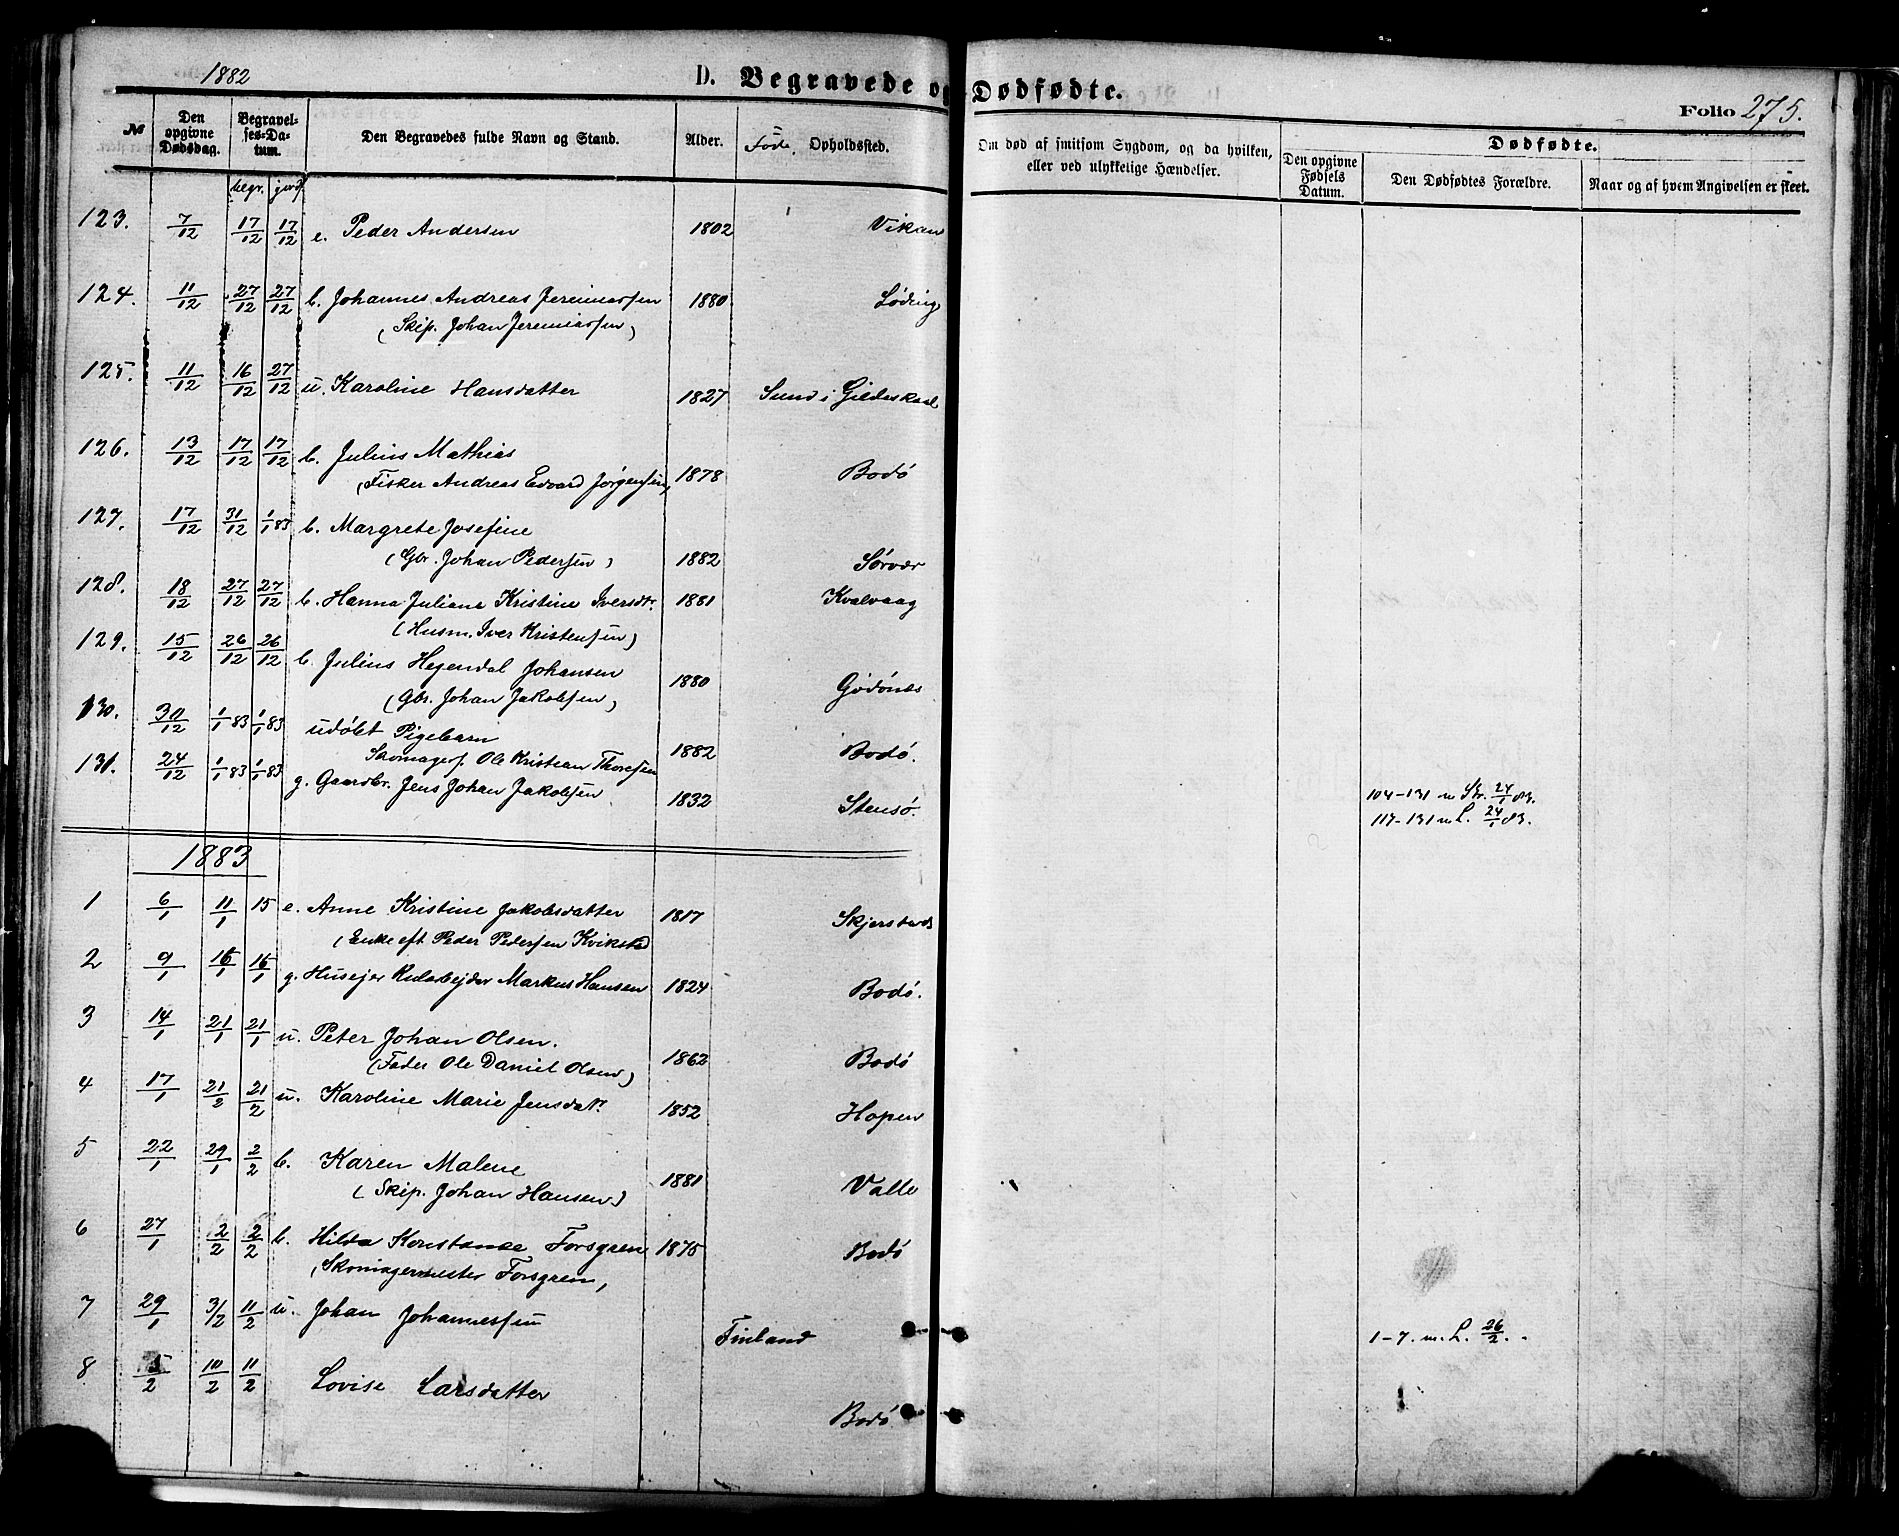 1882
D. Begravede og Dødfødte.
Folio 275.
№ Den opgivne Dødsdag. Begravelses-Datum. Den Begravedes fulde Navn og Stand. Alder. Føde. Opholdssted. Om død af smitsom Sygdom, og da hvilken, eller ved ulykkelige Hændelser. Dødfødte. Den opgivne Fødsels Datum. Den Dødfødtes Forældre. Naar og af hvem Angivelsen er skeet.
begr. jord.
123. 7/12 17/12 17/12 e. Peder Andersen 1802 Vikan
124. 11/12 27/12 27/12 b. Johannes Andreas Jeremiassen 1880 Løding
(Skip. Johan Jeremiassen)
125. 11/12 16/12 27/12 u. Karoline Hansdatter 1827 Sund i Gildeskaal
126. 13/12 17/12 17/12 b. Julius Mathias
(Fisker Andreas Edvard Jørgensen) 1878 Bodø
127. 17/12 31/12 1/1 83 b. Margrete Josefine
(Gbr. Johan Pedersen) 1882 Sørvær
128. 18/12 27/12 27/12 b. Hanna Juliana Kristine Iversdt. 1881 Kvalvaag
(Husm. Iver Kristensen)
129. 15/12 26/12 26/12 b. Julius Hegendal Johansen 1880 Godønes
(Gbr. Johan Jakobsen)
130. 30/12 1/1 83 1/1 83 udøbt Pigebarn
Skomagers. Ole Kristian Thoresen 1882 Bodø.
131. 24/12 1/1 83 1/1 83 g. Gaardbr. Jens Johan Jakobsen 1832 Stensø.
104-131 m Sk. 24/1 83.
117-131 m L. 24/1 83.
1883
1 6/1 11/1 15 e. Anne Kristine Jakobsdatter 1817 Skjerstad
(Enke eft Peder Pedersen Kvikstad
2 9/1 16/1 16/1 g. Husejer Malarbejder Markus Hansen 1824 Bodø.
3 14/1 21/1 21/1 u. Peter Johan Olsen.
(Fader Ole Daniel Olsen) 1862 Bodø
4 17/1 21/2 21/2 u. Karoline Marie Jensdatr. 1852 Hopen
5 22/1 29/1 2/2 b. Karen Malene
(Skip. Johan Hansen) 1881 Valle
6 27/1 2/2 2/2 b. Hilda Konstanse Forsgren 1875 Bodø
(Skomagermester Forsgren)
7 29/1 3/2 11/2 u. Johan Johannessen Finland
1-7. m. L. 26/2.
8 5/2 10/2 11/2 Lovise Larsdatter Bodø.